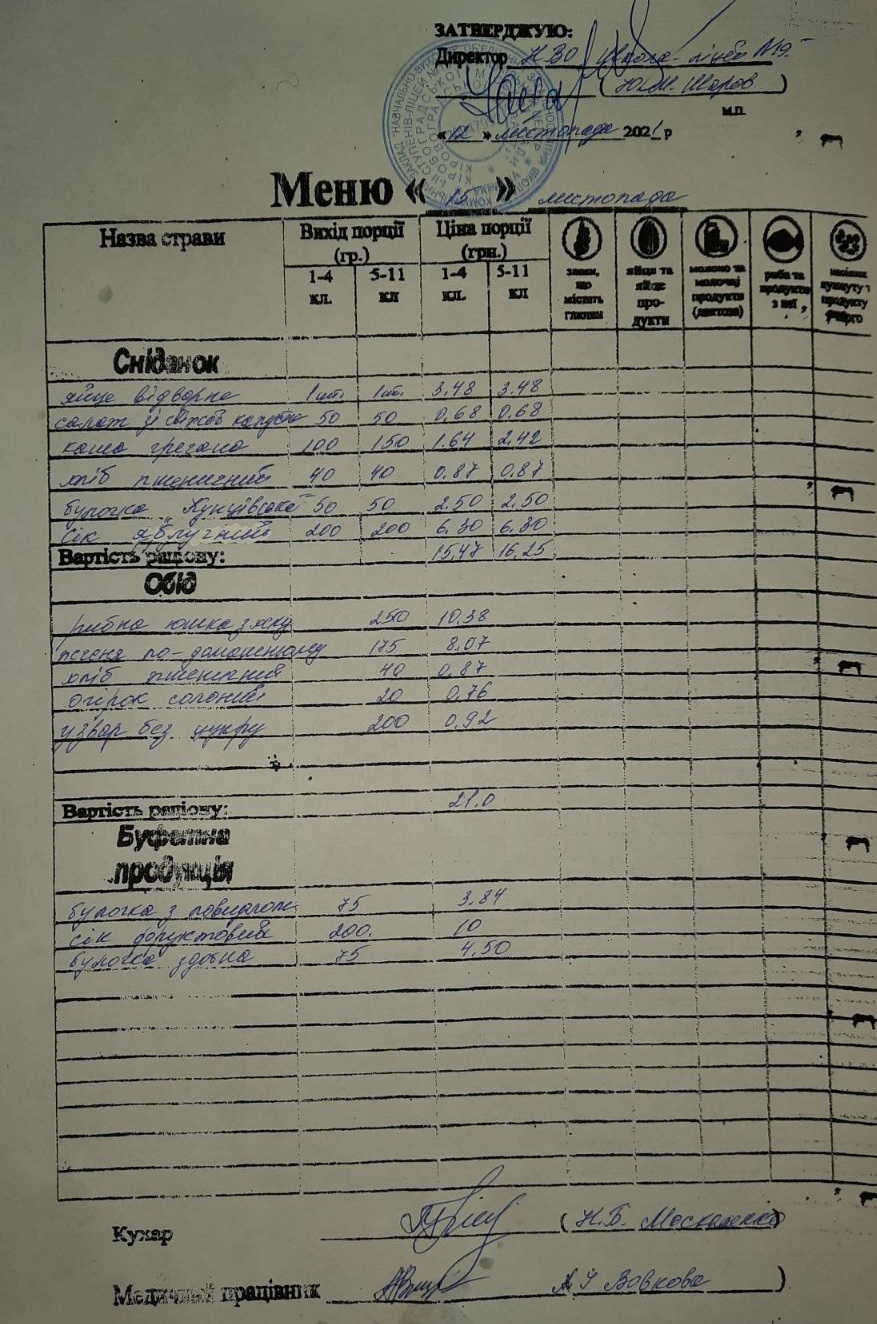 ЗАТВЕРДЖУЮ:
Директор НВО школа-ліцей №19
(Ю.М. Шаров)
м.п.
«12» листопада 2021 р
Меню «15» листопада
Назва страви Вихід порції (гр.) Ціна порції (грн.) злаки, що містять глютен яйця та яйце продукти молоко та молочні продукти (лактоза) риба та продукти з неї
1-4 кл. 5-11 кл 1-4 кл. 5-11 кл
Сніданок
яйце відворне 1 шт. 1 шт. 3.48 3.48
салат зі свіжої капусти 50 50 0,68 0,68
каша гречана 100 150 1.64 2.42
хліб пшеничний 40 40 0.87 0.87
булочка "Кунцівська" 50 50 2.50 2.50
сік яблучний 200 200 6.30 6.30
Вартість раціону: 15,47 16,25
Обід
рибна юшка з хеку 250 10.38
печеня по-домашньому 175 8.07
хліб пшеничний 40 0,87
огірок солоний 20 0,76
узвар без цукру 200 0.92
Вартість раціону: 21.0
Буфетна продукція
булочка з повидлом 75 3.84
сік фруктовий 200. 10
булочка здобна 75 4.50
Кухар (Н.Б. Москаленко)
Медичний працівник А У Вовкова )